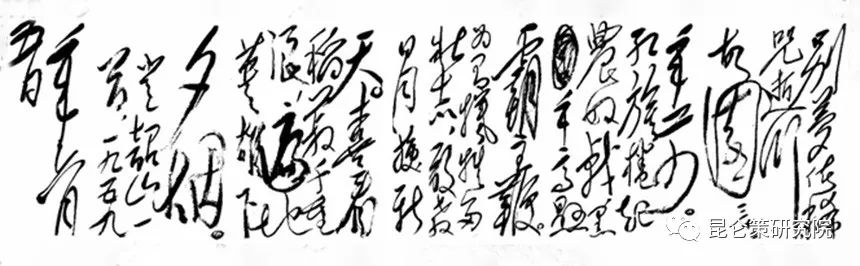 别梦依稀
咒逝川
故园三十
二年前。
红旗卷起
农奴戟黑
手高悬
霸主鞭。
为有牺牲多
壮志,敢教
日月换新
天。喜看
稻菽千重
浪,遍地
英雄下
夕烟。
登韶山一
首 一九五九
年六月
昆仑策研究院